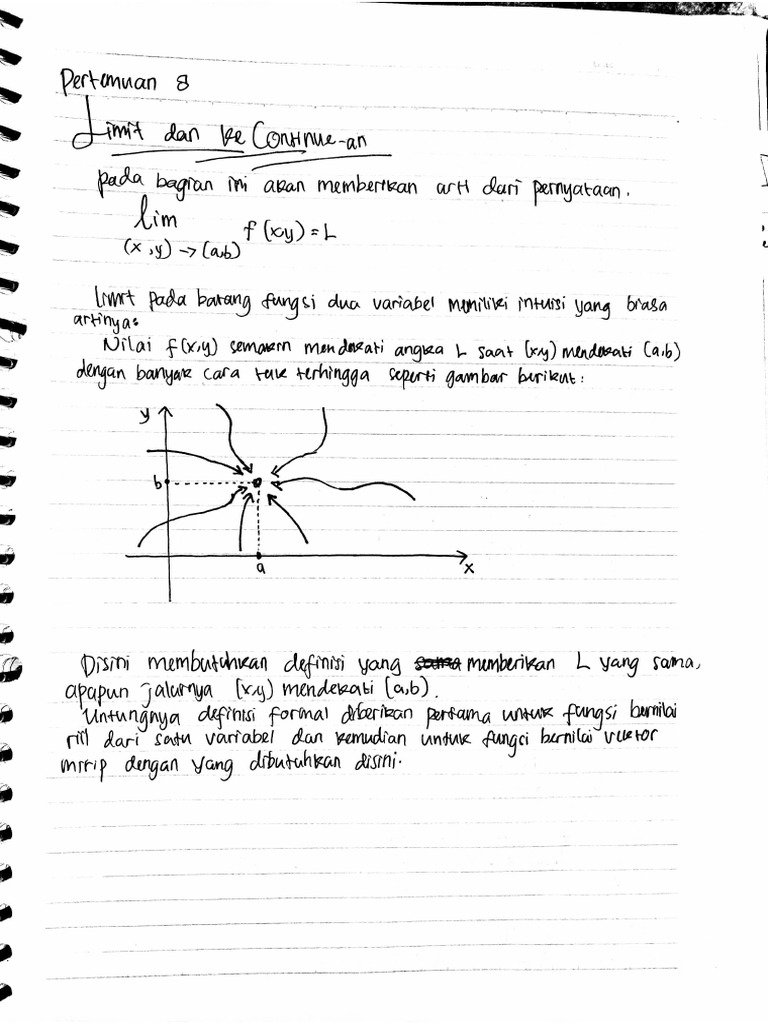 Pertemuan 8
Limit dan ke Continue-an
pada bagian ini akan memberikan arti dari pernyataan.
lim f(x,y) = L
(x,y) → (a,b)
Limit pada batang fungsi dua variabel memiliki intuisi yang biasa
artinya:
Nilai f(x,y) semakin mendekati angka L saat (x,y) mendekati (a,b)
dengan banyak cara tak terhingga seperti gambar berikut:
y
b
a
x
Disini membutuhkan definisi yang memberikan L yang sama,
apapun jalurnya (x,y) mendekati (a,b).
Untungnya definisi formal diberikan pertama untuk fungsi bernilai
riil dari satu variabel dan kemudian untuk fungsi bernilai vektor
mirip dengan yang dibutuhkan disini.